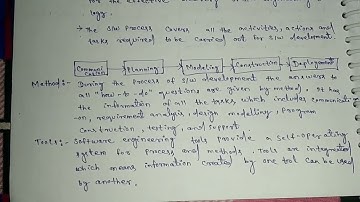 for the effective
logy.
→ The S/W process covers all the activities, actions and
tasks required to be carried out for S/W development.
Communication Planning Modeling Construction Deployment
Methods:- During the process of S/W development the answers to
all "how-to-do" questions are given by method. It has
the information of all the tasks which includes communicati
-on, requirement analysis, design modelling, program
construction, testing, and support.
Tools:- Software engineering tools provide a self-operating
system for process and methods. Tools are integrated
which means information created by one tool can be used
by another.